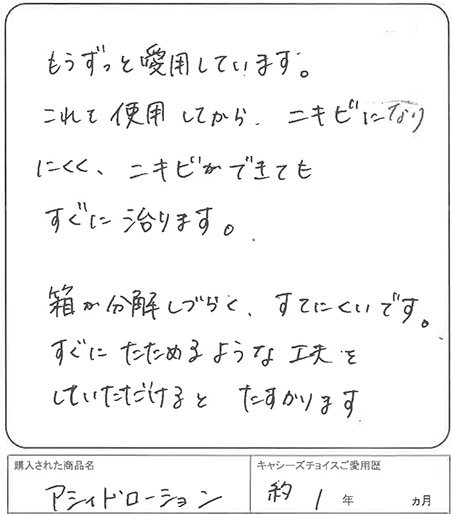 もうずっと愛用しています。
これを使用してから、ニキビになり
にくく、ニキビができても
すぐに治ります。
箱が分解しづらく、すてにくいです。
すぐにたためるような工夫を
していただけるとたすかります
購入された商品名
キャシーズチョイスご愛用歴
アシィドローション
約1年 ヵ月